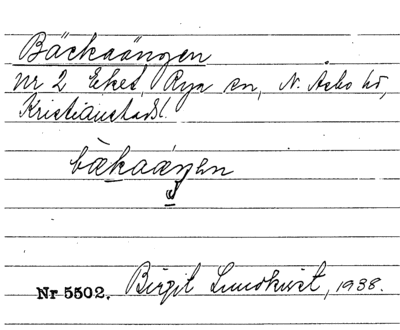 Bäckaängen
nr 2 Eket Rya sn, N. Åsbo hd,
Kristianstads l.
bækaáŋen
Nr 5502. Birgit Lundkvist, 1938.